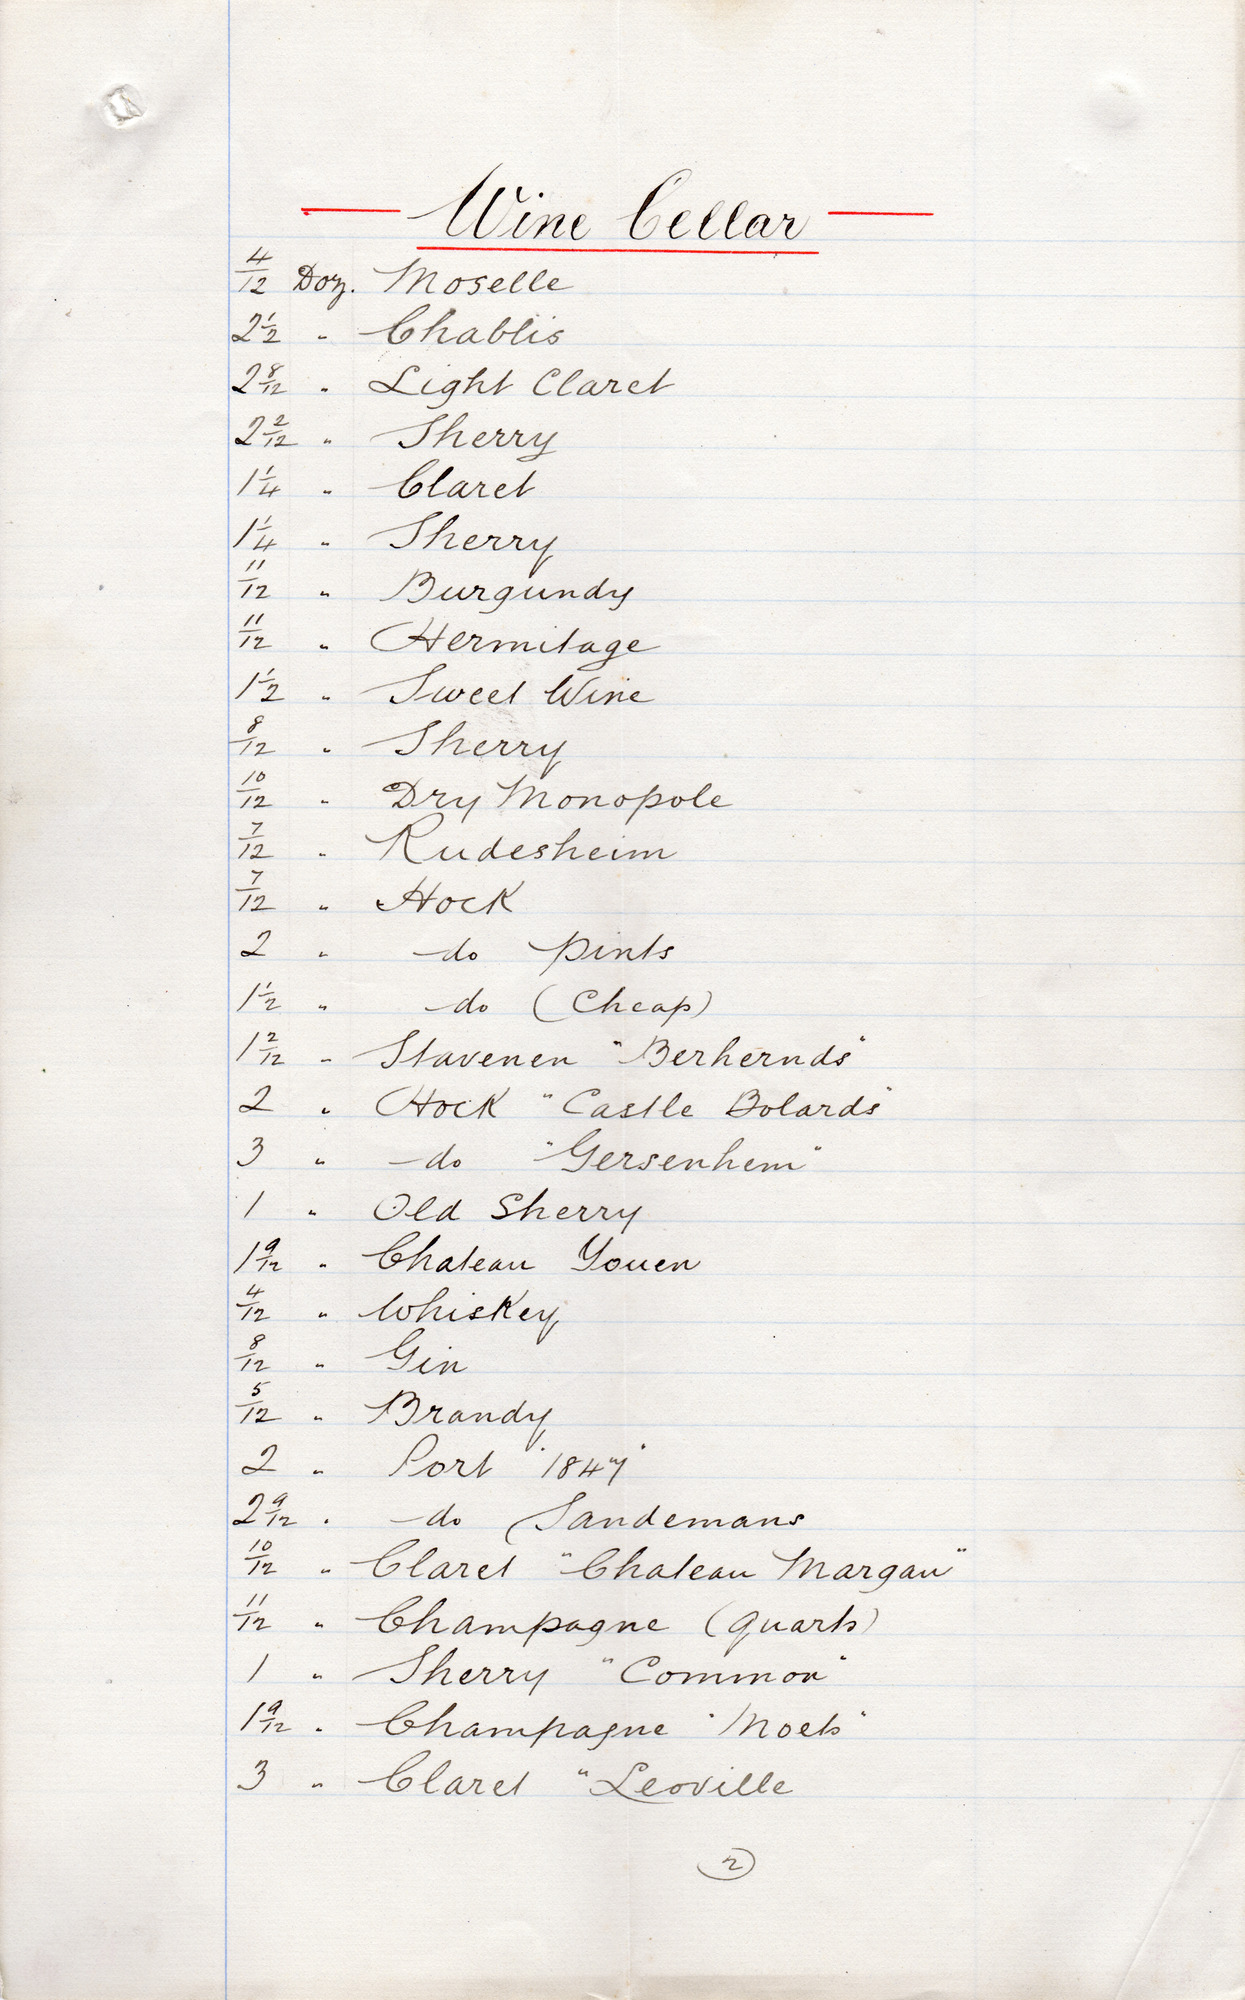 — Wine Cellar —
4/12 Doz. Moselle
2 1/2 " Chablis
2 8/12 " Light Claret
2 2/12 " Sherry
1 1/4 " Claret
1 1/4 " Sherry
11/12 " Burgundy
11/12 " Hermitage
1 1/2 " Sweet Wine
8/12 " Sherry
10/12 " Dry Monopole
7/12 " Rudesheim
7/12 " Hock
2 " — do pints
1 1/2 " — do (Cheap)
1 2/12 " Stavenen "Berhernds"
2 " Hock "Castle Bolards"
3 " — do "Gersenhem"
1 " Old Sherry
1 9/12 " Chateau Youen
4/12 " Whiskey
8/12 " Gin
5/12 " Brandy
2 " Port "1847"
2 9/12 " — do Sandemans
10/12 " Claret "Chateau Margau"
11/12 " Champagne (quarts)
1 " Sherry "Common"
1 9/12 " Champagne "Moets"
3 " Claret "Leoville
2